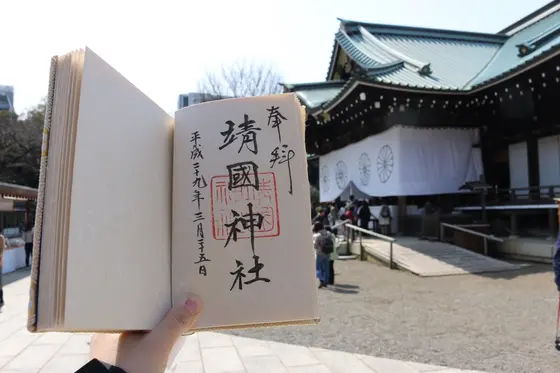 奉拝
靖國神社
平成二十九年三月二十五日